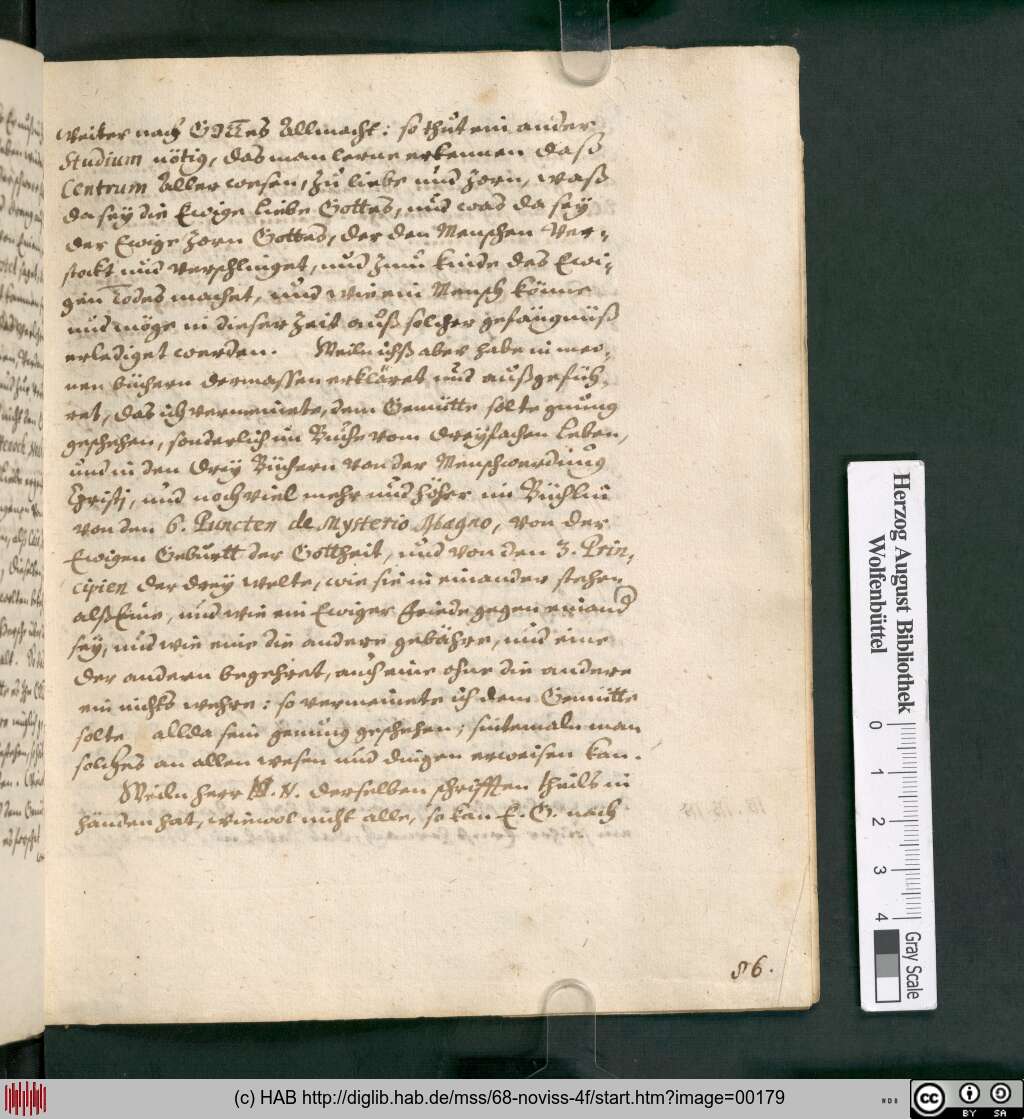 weiter nach GOTTes Allmacht: so thut ein ander
Studium nötig, das man lerne erkennen daß
Centrum Aller wesen, zu liebe und zorn, waß
da sey die Ewige liebe Gottes, und was da sey
der Ewige zorn Gottes, der den Menschen ver-
stockt und verschlinget, und zum kinde des Ewi-
gen Todes machet, und wie ein Mensch könne
und möge in dieser zeit auß solcher gefängnüß
erlediget werden. Weiln ichß aber habe in mei-
nen büchern dermassen erkläret und außgefüh-
ret, das ich vermeinete, dem Gemütte solte gnung
geschehen, sonderlich im Buche vom dreyfachen leben,
und in den drey Büchern von der Menschwerdung
Christj, und noch viel mehr und höher im Büchlin
von den 6. Puncten de Mysterio Magno, von der
Ewigen Gebuertt der Gottheit, und von den 3. Prin-
cipien der drey welte, wie sie in einander stehen
alß Eine, und wie ein Ewiger friede gegen einand
sey, und wie eine die andere gebähre, und eine
der andern begehret, auch eine ohne die andere
ein nichts wehre: so vermeinete ich dem Gemütte
solte allda sein genung geschehen; sintemaln man
solches an allen wesen und dingen erweisen kan.
Weiln herr N. N. derselben schrifften theils in
händen hat, wiewol nicht alle, so kan E. G. nach
86.
Herzog August Bibliothek
Wolfenbüttel
0 1 2 3 4
Gray Scale
(c) HAB http://diglib.hab.de/mss/68-noviss-4f/start.htm?image=00179
cc BY SA